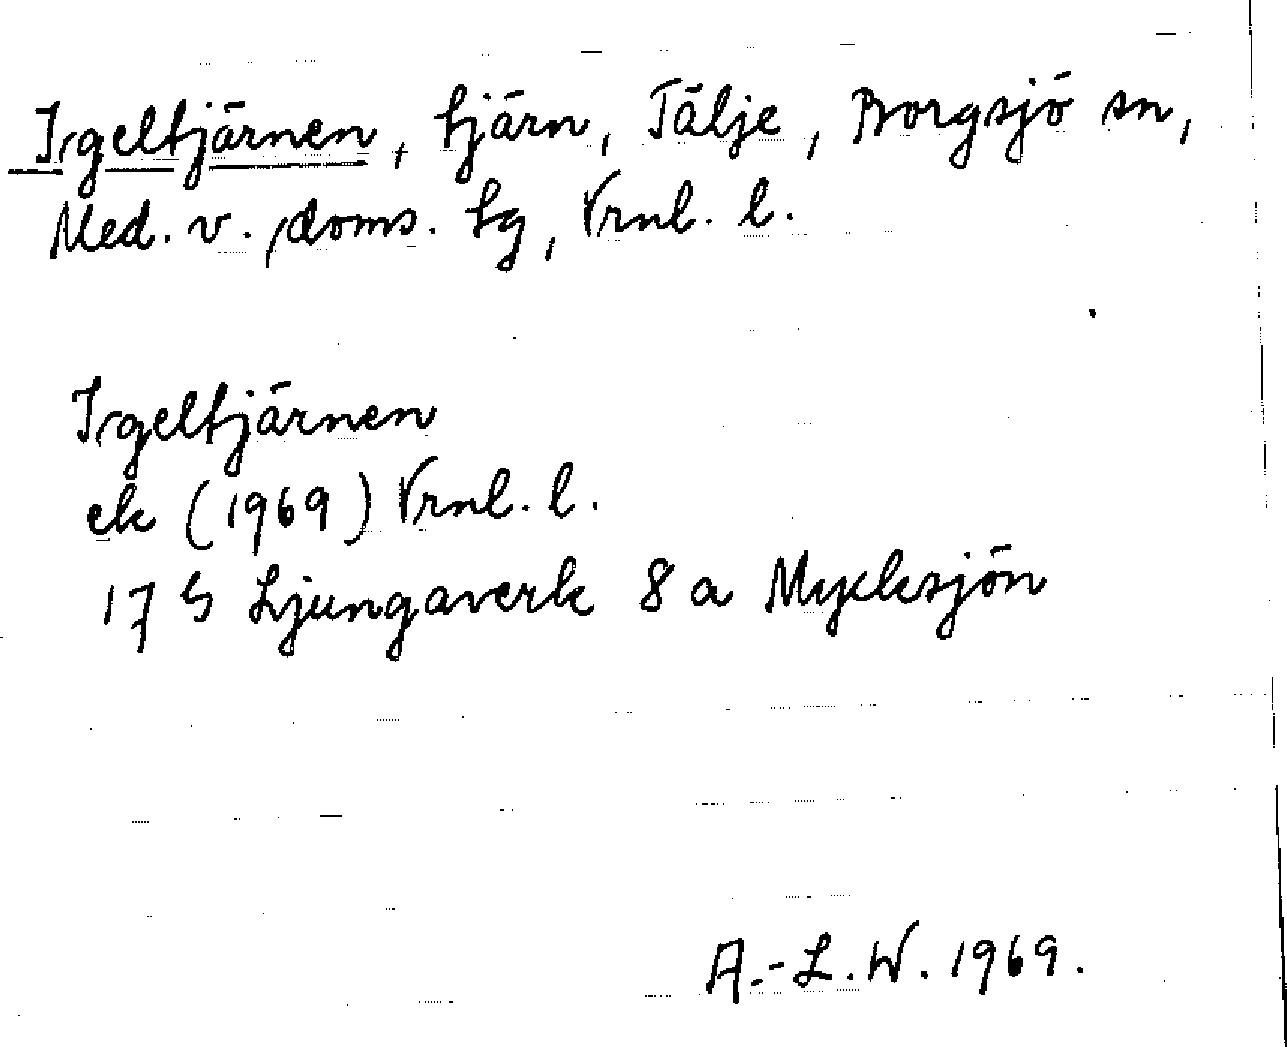 Igeltjärnen, tjärn, Tälje, Borgsjö sn,
Med. v. doms. tg, Vrnl. l.
Igeltjärnen
ek (1969) Vrnl. l.
17 G Ljungaverk 8 a Mycksjön
A.-L.W. 1969.